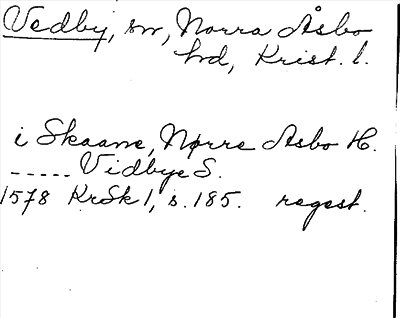 Vedby, sn, Norra Åsbo
hd, Krist. l.
i Skaane, Nørre Aasbo H.
----- Vidbye S.
1578 KrSk 1, s. 185. regest.